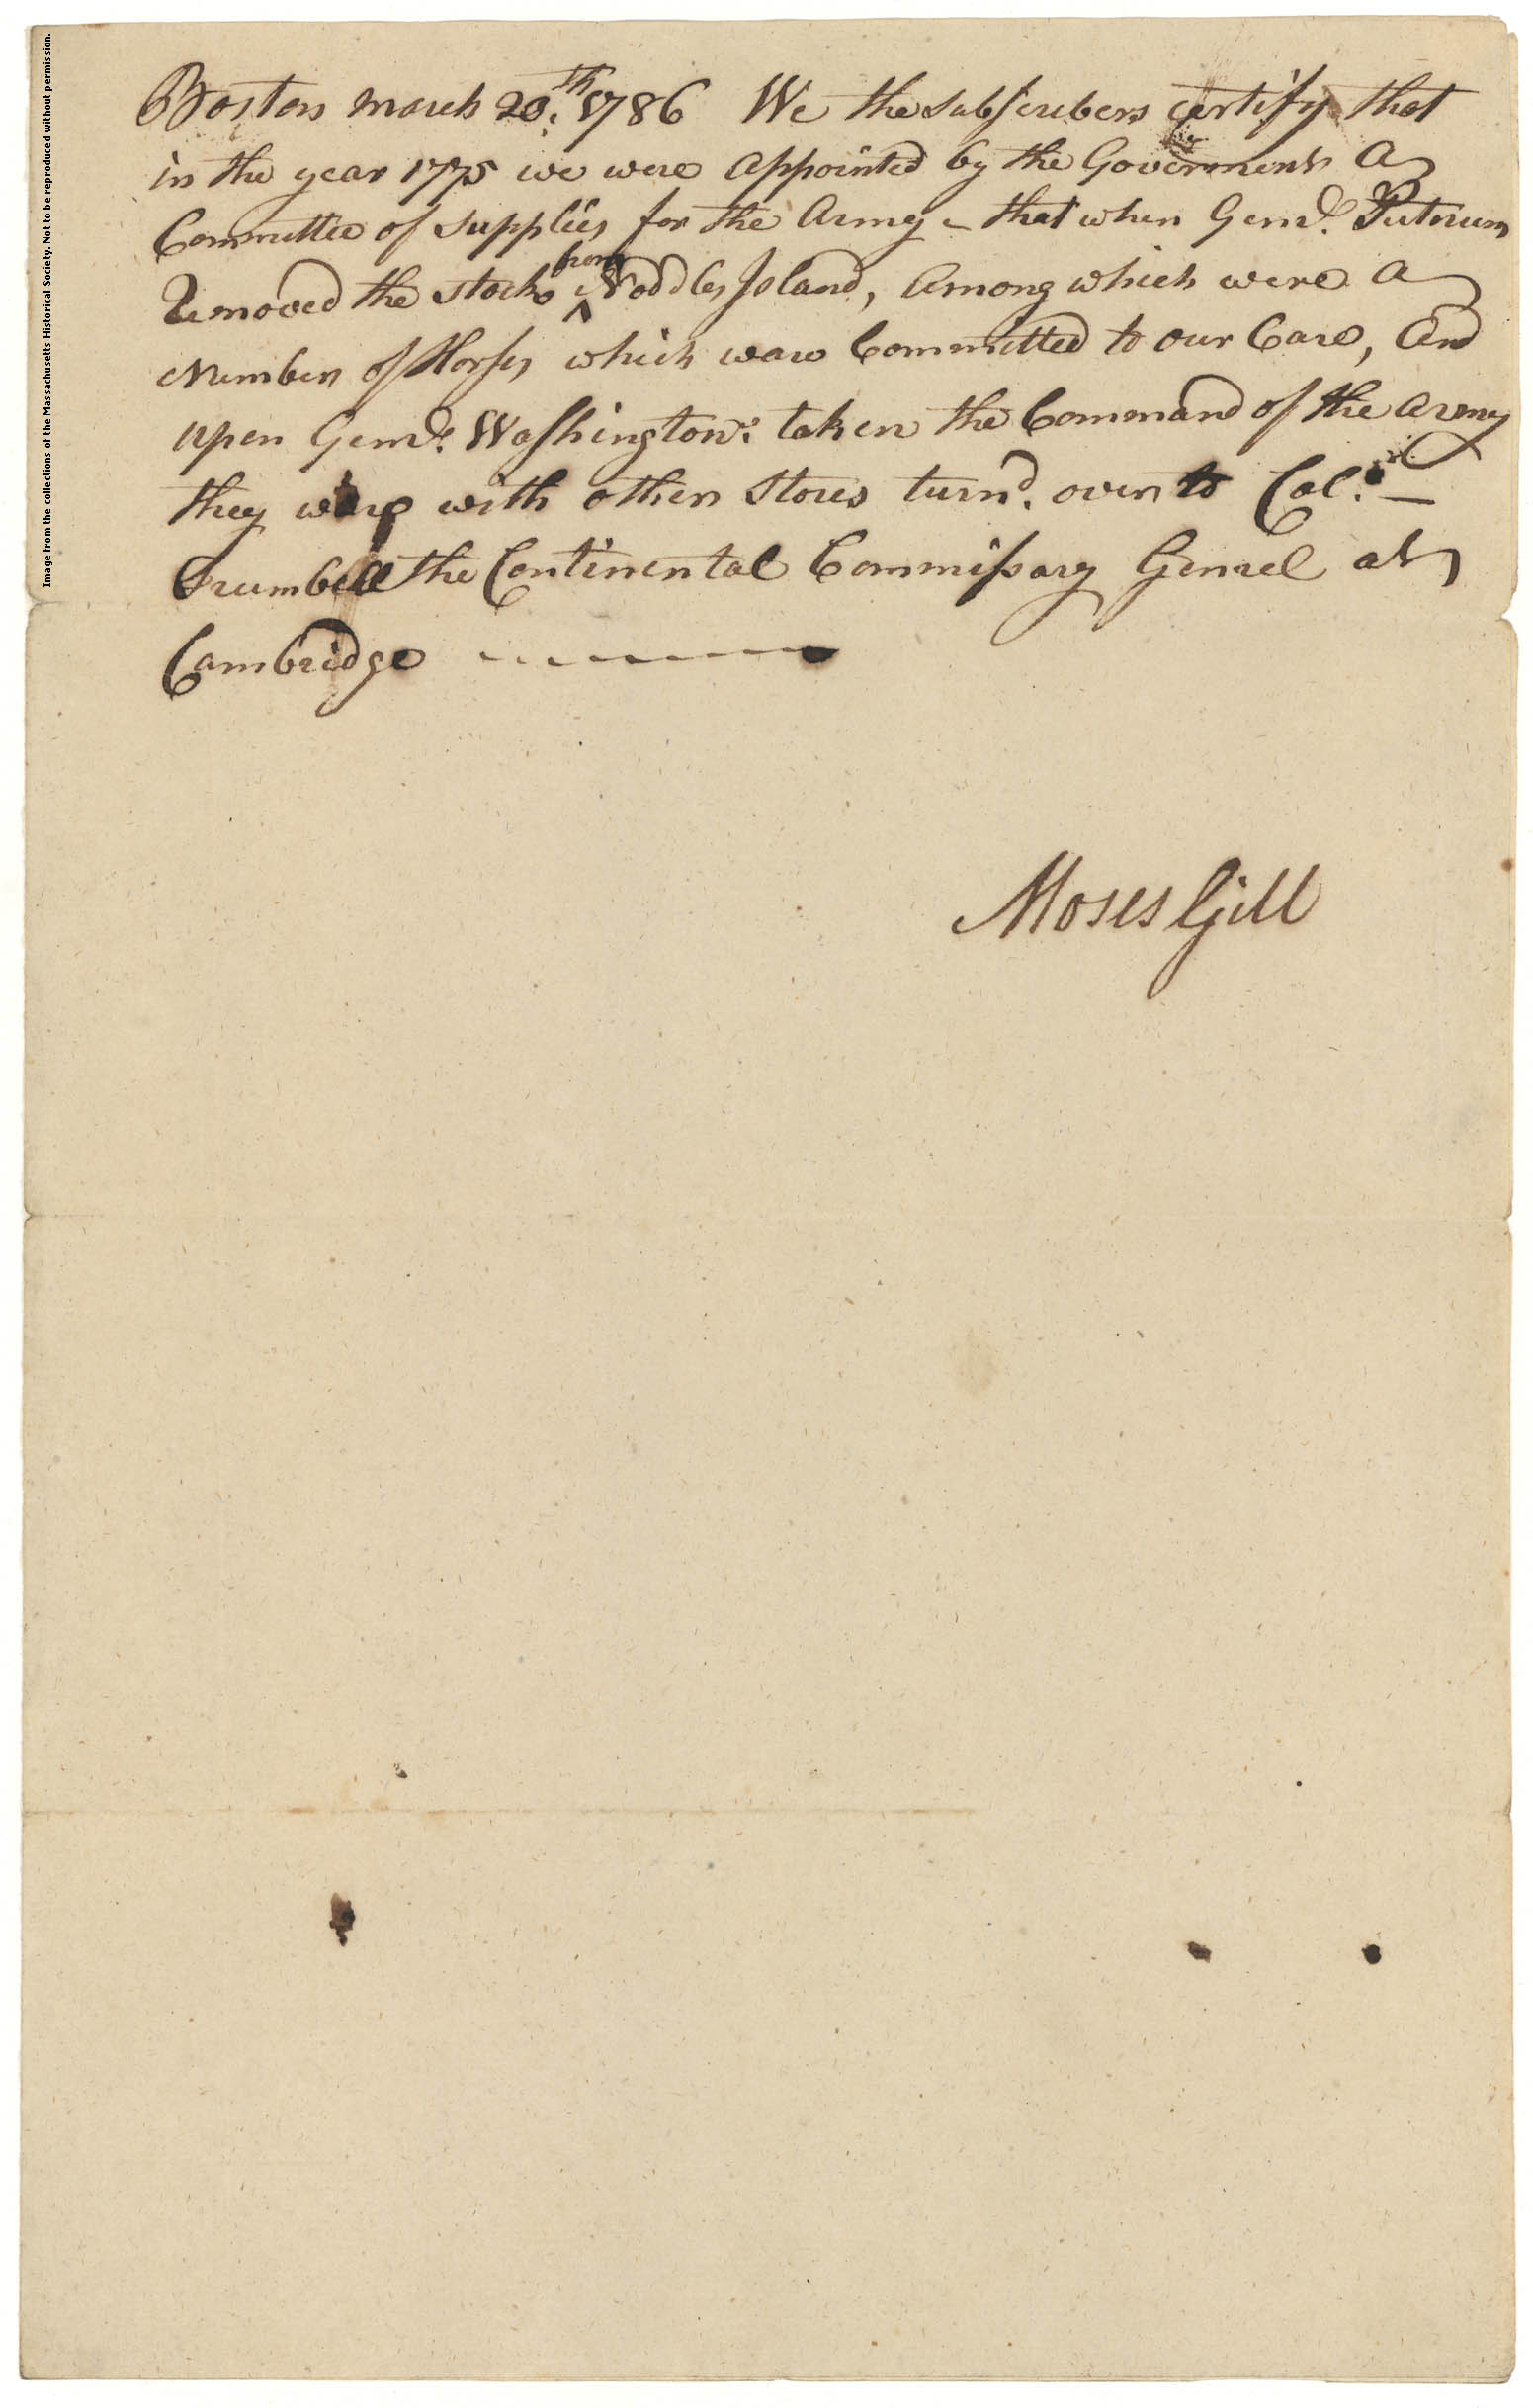 Boston march 20.th 1786 We the subscribers certify that
in the year 1775 we were appointed by the Goverment a
Committee of supplies for the Army - that when Genl. Putnum
Removed the stock from Noddles Island, Among which were a
Number of Horses which ware Committed to our Care, And
upon Genl. Washington: taken the Command of the army
they were with other Stores turnd. over to Col. —
Trumbell the Continental Commissary Genrel at
Cambridge
Moses Gill
Image from the collections of the Massachusetts Historical Society. Not to be reproduced without permission.